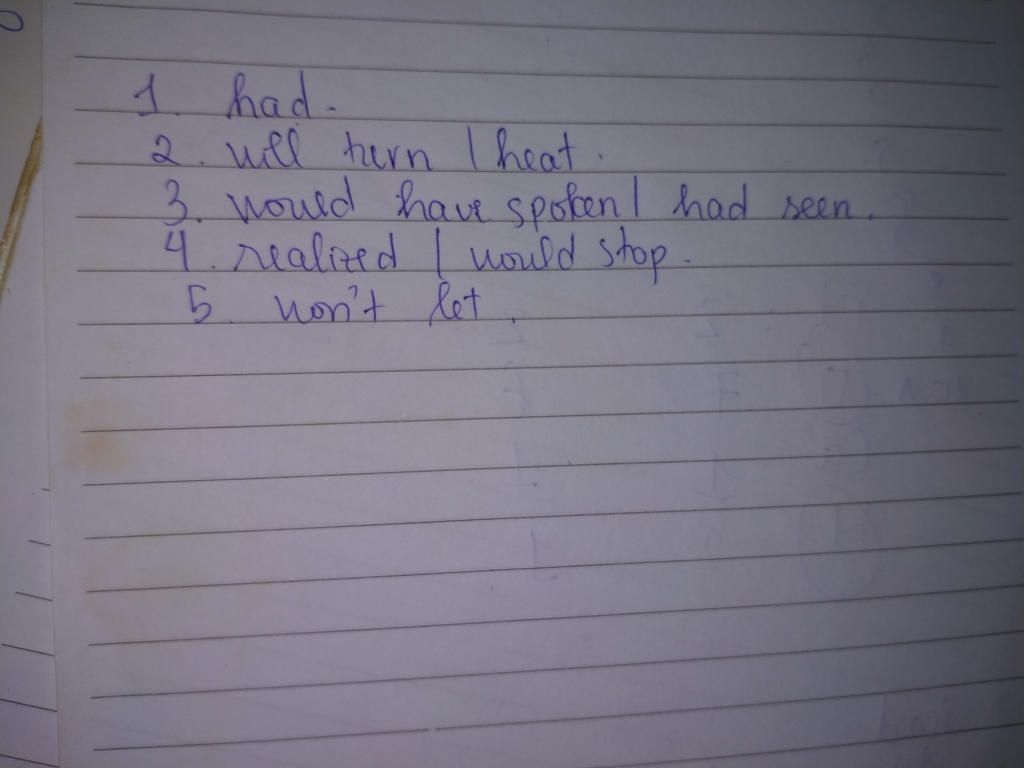 1. had.
2. will turn / heat.
3. would have spoken / had seen.
4. realized / would stop.
5. won't let.